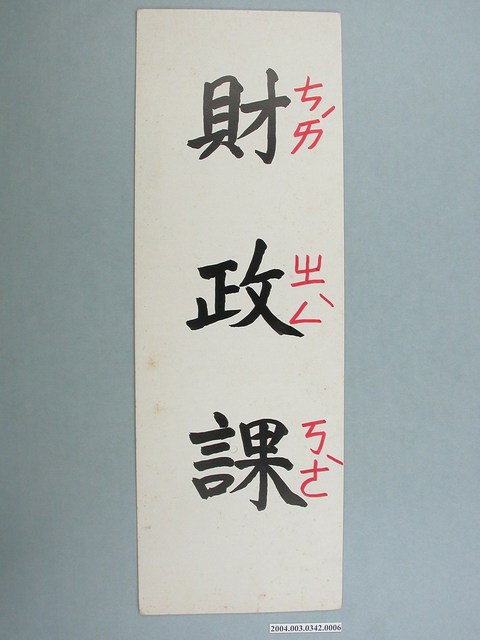 財ㄘㄞˊ
政ㄓㄥˋ
課ㄎㄜˋ
2004.003.0342.0006